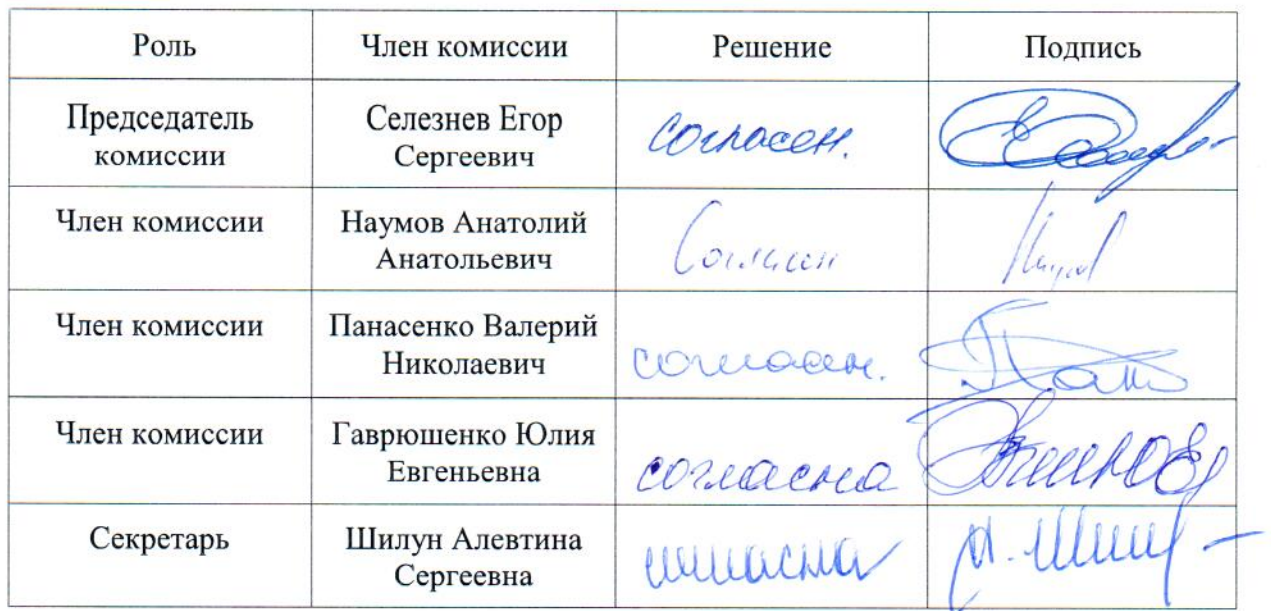 Роль Член комиссии Решение Подпись
Председатель
комиссии
Селезнев Егор
Сергеевич
согласен.
Член комиссии
Наумов Анатолий
Анатольевич
Согласен
Член комиссии
Панасенко Валерий
Николаевич
согласен.
Член комиссии
Гаврюшенко Юлия
Евгеньевна
согласна
Секретарь
Шилун Алевтина
Сергеевна
согласна